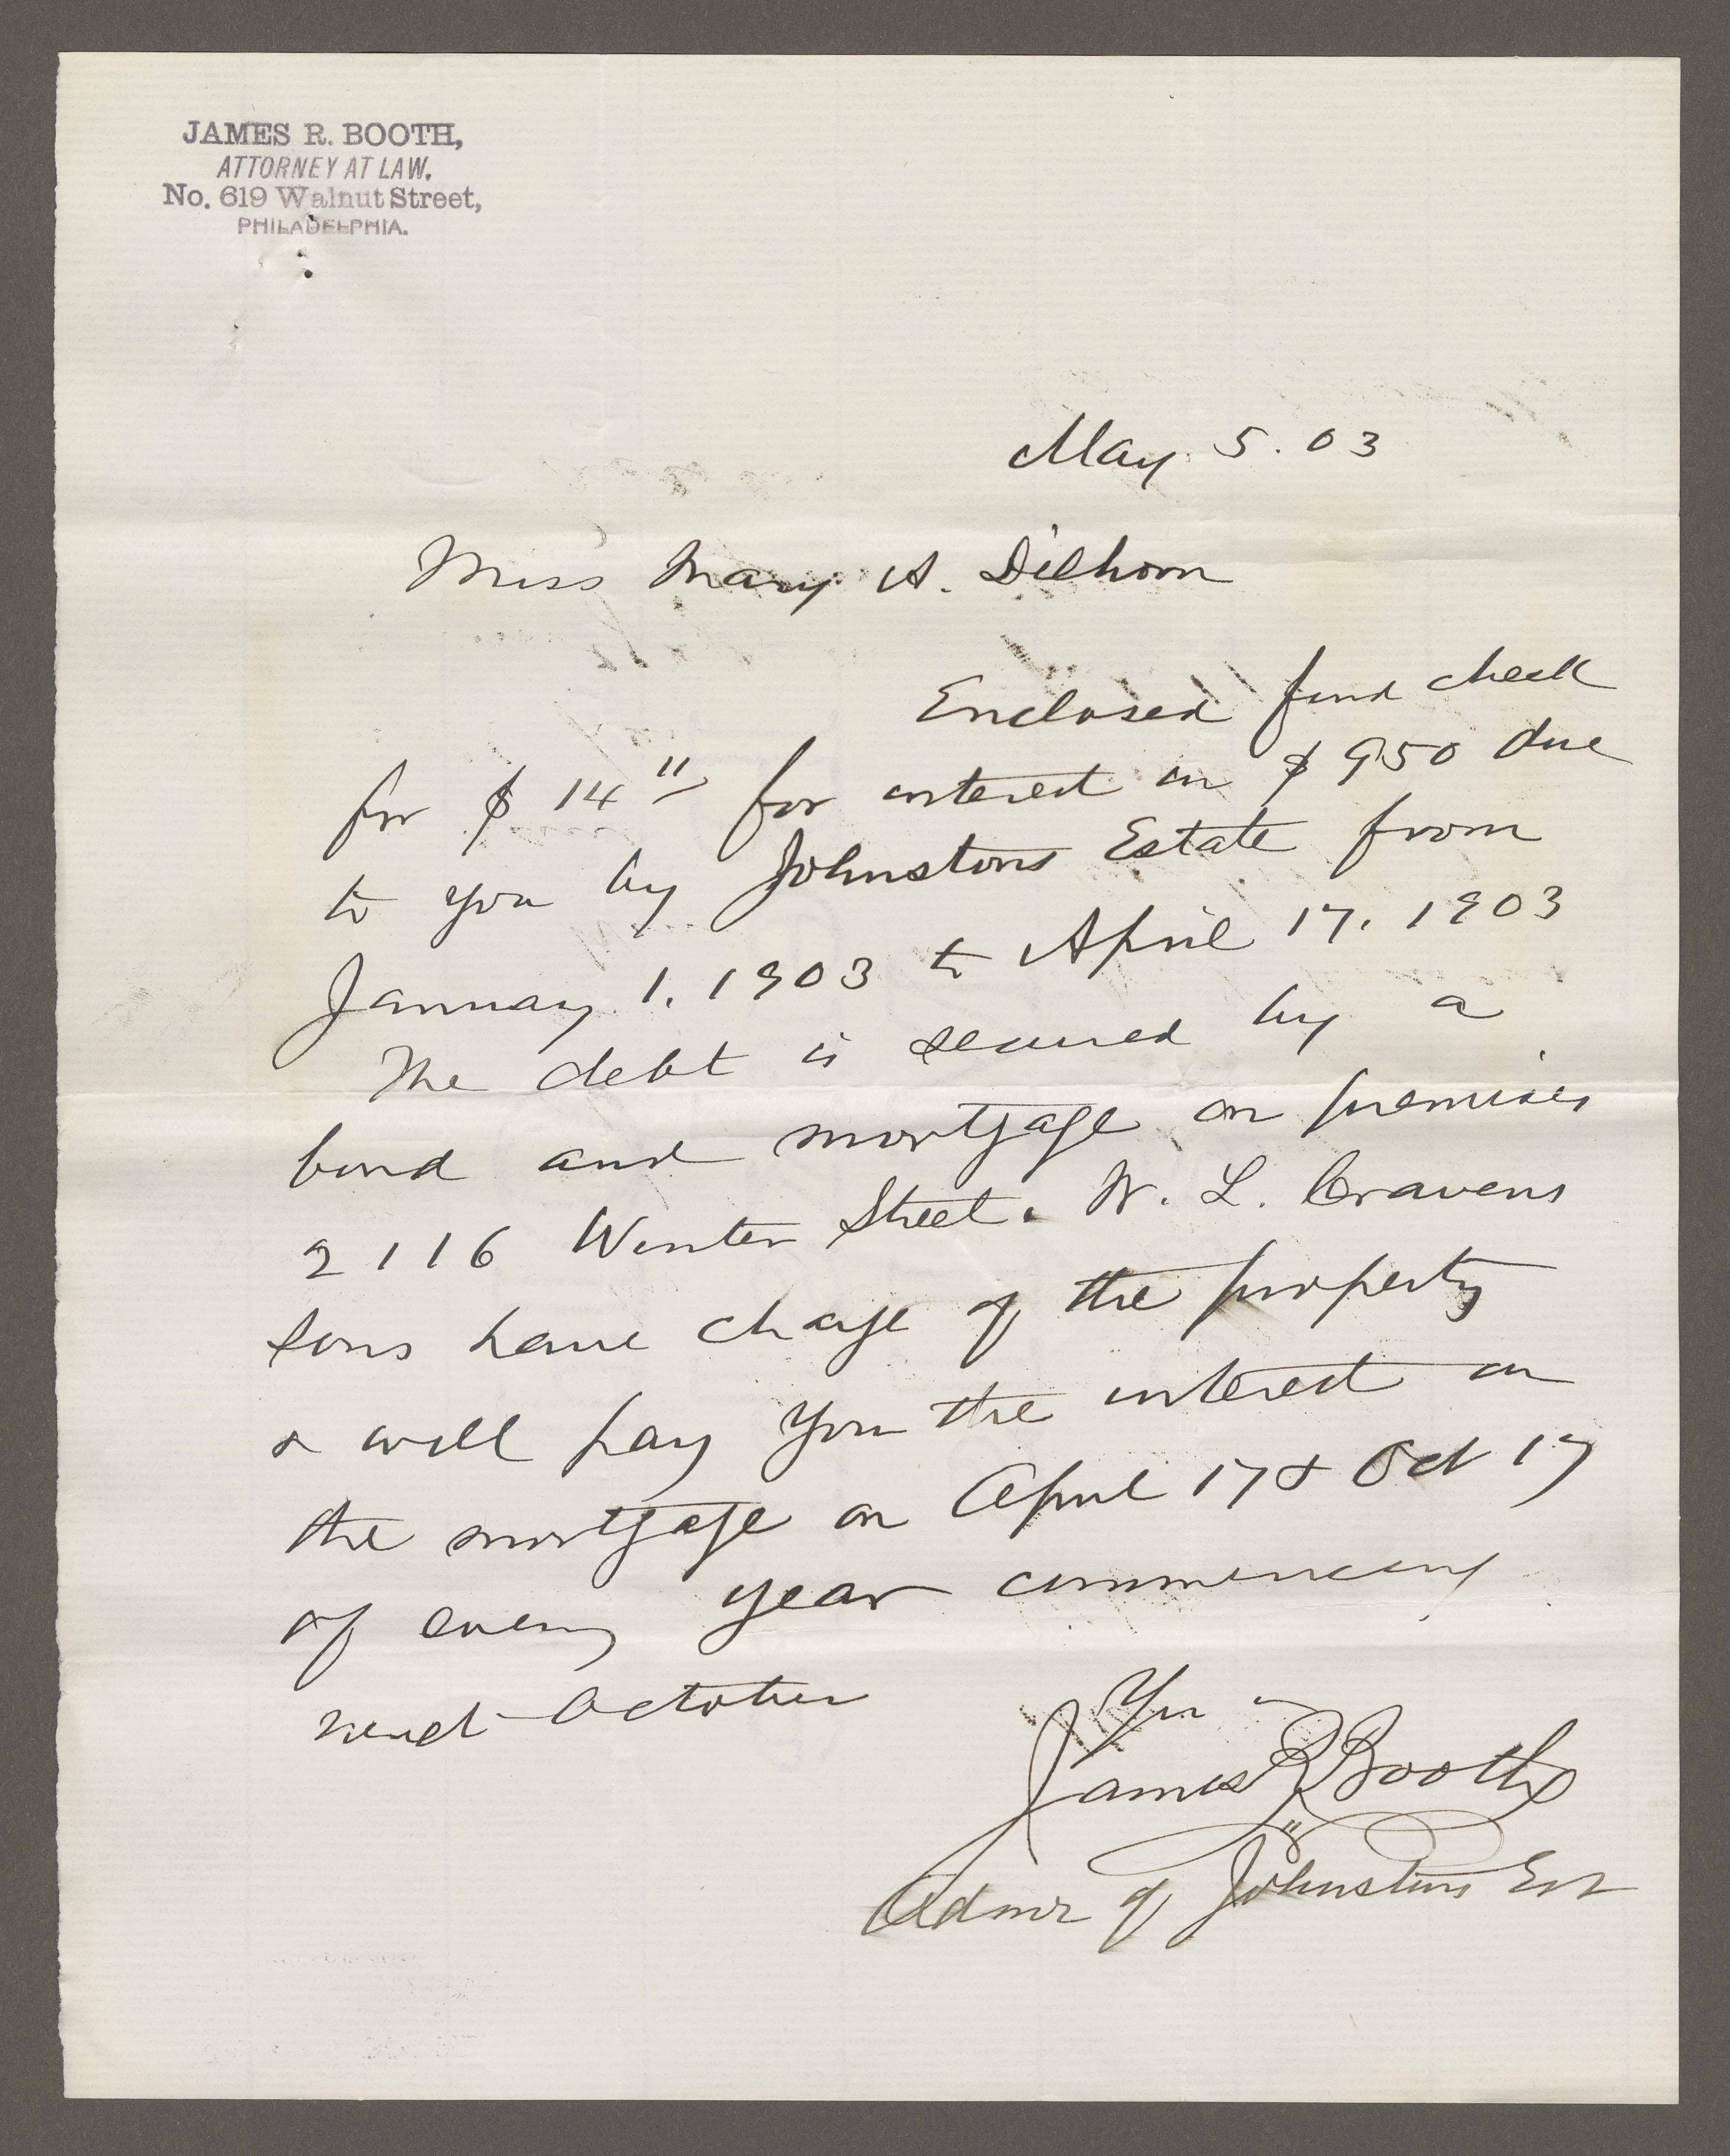 JAMES R. BOOTH,
ATTORNEY AT LAW.
No. 619 Walnut Street,
PHILADELPHIA.
May 5. 03
Miss Mary A. Dilhorn
Enclosed find check
for $ 14 11 for interest on $ 950 due
to you by Johnstons Estate from
January 1. 1903 to April 17. 1903
The debt is secured by a
bond and mortgage on premises
2116 Winter Street. W. L. Cravens
sons have charge of the property
& will pay you the interest on
the mortgage on April 17 & Oct 17
of every year commencing
next October
James R Booth
Admr of Johnstons Est